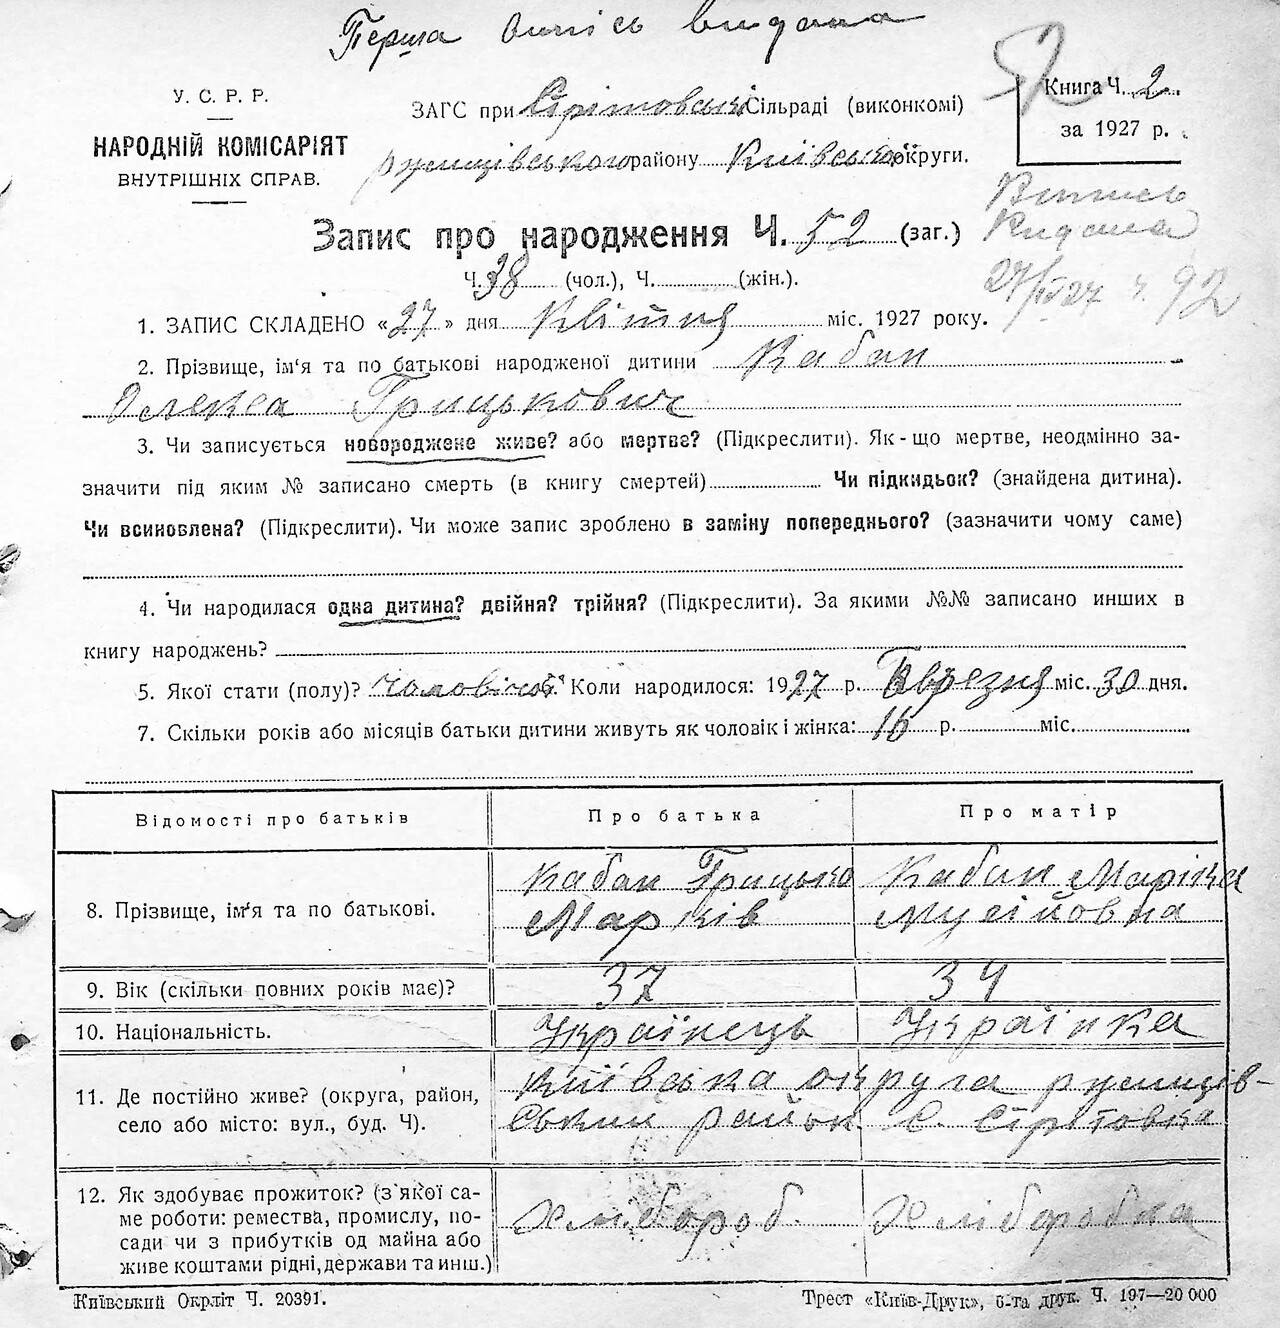 Перша випись видана
У. С. Р. Р.
НАРОДНІЙ КОМІСАРІЯТ
ВНУТРІШНІХ СПРАВ.
ЗАГС при Стрітовській Сільраді (виконкомі)
ржищівського району Київської округи.
52
Книга Ч. 2.
за 1927 р.
Випись
видана
27/IV 27 ч. 92
Запис про народження Ч. 52 (заг.)
Ч. 38 (чол.), Ч. (жін.).
1. ЗАПИС СКЛАДЕНО «27» дня Квітня міс. 1927 року.
2. Прізвище, ім'я та по батькові народженої дитини Кабан
Олекса Грицькович
3. Чи записується новороджене живе? або мертве? (Підкреслити). Як-що мертве, неодмінно за-
значити під яким № записано смерть (в книгу смертей) Чи підкидьок? (знайдена дитина).
Чи всиновлена? (Підкреслити). Чи може запис зроблено в заміну попереднього? (зазначити чому саме)
4. Чи народилася одна дитина? двійня? трійня? (Підкреслити). За якими №№ записано инших в
книгу народжень?
5. Якої стати (полу)? Чоловічої Коли народилося: 1927 р. Березня міс. 30 дня.
7. Скільки років або місяців батьки дитини живуть як чоловік і жінка: 16 р. міс.
Відомості про батьків Про батька Про матір
8. Прізвище, ім'я та по батькові. Кабан Грицько Кабан Маріка
Марків Мусійовна
9. Вік (скільки повних років має)? 37 34
10. Національність. Українець Українка
11. Де постійно живе? (округа, район, Київська округа ржищів-
село або місто: вул., буд. Ч). ський район с. Стрітовка
12. Як здобуває прожиток? (з'якої са-
ме роботи: ремества, промислу, по- Хлібороб. Хліборобка
сади чи з прибутків од майна або
живе коштами рідні, держави та инш.)
Київський Окрліт Ч. 20391.
Трест «Київ-Друк», 6-та друк. Ч. 197—20 000